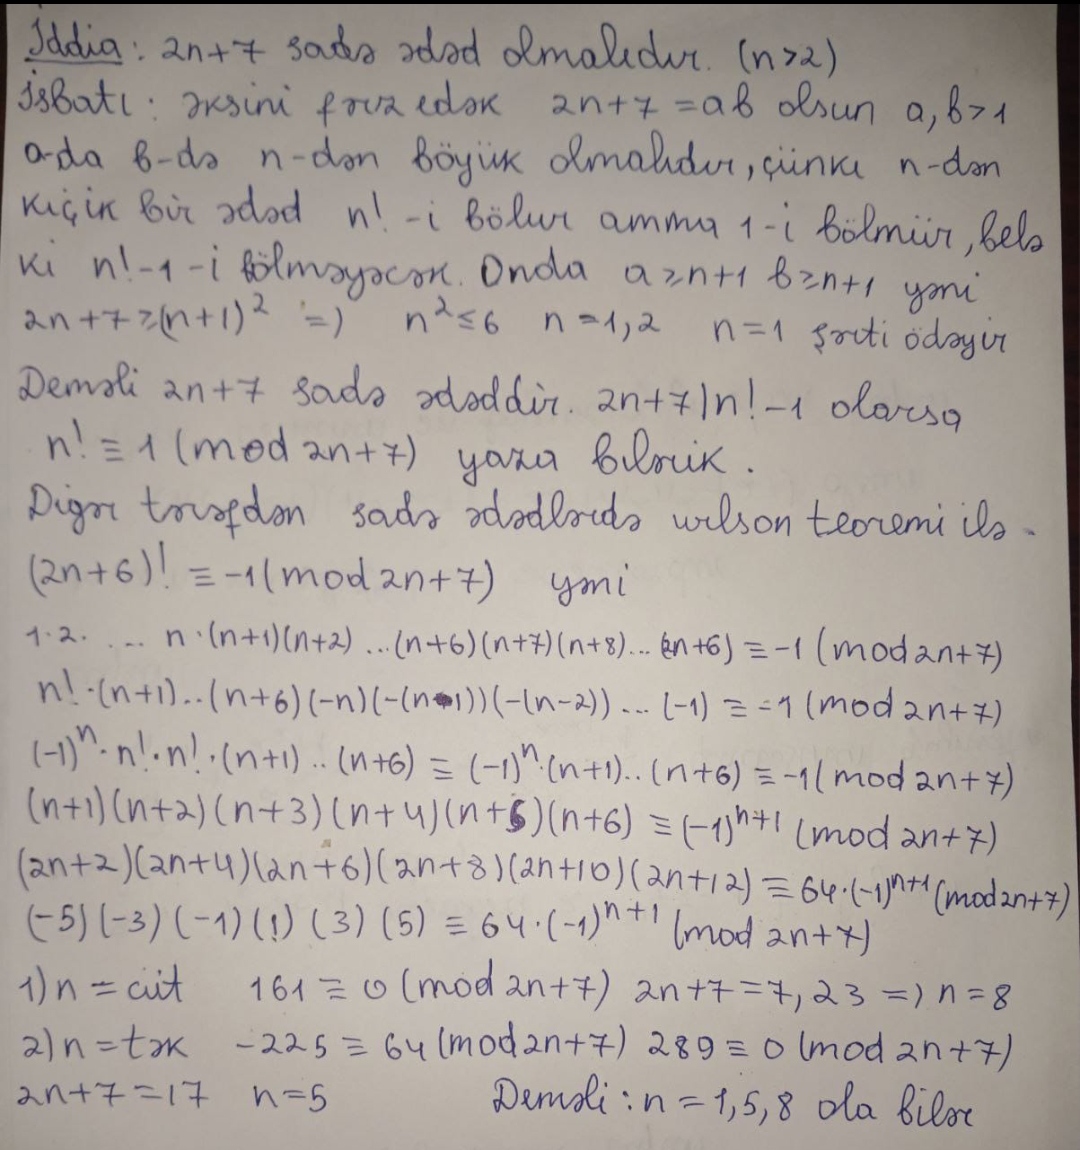 İddia: 2n+7 sadə ədəd olmalıdır. (n>2)
İsbatı: əksini fərz edək 2n+7=ab olsun a,b>1
a-da b-də n-dən böyük olmalıdır, çünki n-dən
kiçik bir ədəd n!-i bölür amma 1-i bölmür, belə
ki n!-1-i bölməyəcək. Onda a≥n+1 b≥n+1 yəni
2n+7≥(n+1)² => n²≤6 n=1,2 n=1 şərti ödəyir
Deməli 2n+7 sadə ədəddir. 2n+7|n!-1 olarsa
n!≡1(mod 2n+7) yaza bilərik.
Digər tərəfdən sadə ədədlərdə wilson teoremi ilə -
(2n+6)!≡-1(mod 2n+7) yəni
1·2· ... n·(n+1)(n+2)...(n+6)(n+7)(n+8)...(2n+6)≡-1(mod 2n+7)
n!·(n+1)..(n+6)(-n)(-(n-1))(-(n-2))...(-1)≡-1(mod 2n+7)
(-1)ⁿ·n!·n!·(n+1)..(n+6)≡(-1)ⁿ·(n+1)..(n+6)≡-1(mod 2n+7)
(n+1)(n+2)(n+3)(n+4)(n+5)(n+6)≡(-1)ⁿ⁺¹(mod 2n+7)
(2n+2)(2n+4)(2n+6)(2n+8)(2n+10)(2n+12)≡64·(-1)ⁿ⁺¹(mod 2n+7)
(-5)(-3)(-1)(1)(3)(5)≡64·(-1)ⁿ⁺¹(mod 2n+7)
1)n=cüt 161≡0(mod 2n+7) 2n+7=7,23=)n=8
2)n=tək -225≡64(mod 2n+7) 289≡0(mod 2n+7)
2n+7=17 n=5 Deməli:n=1,5,8 ola bilər